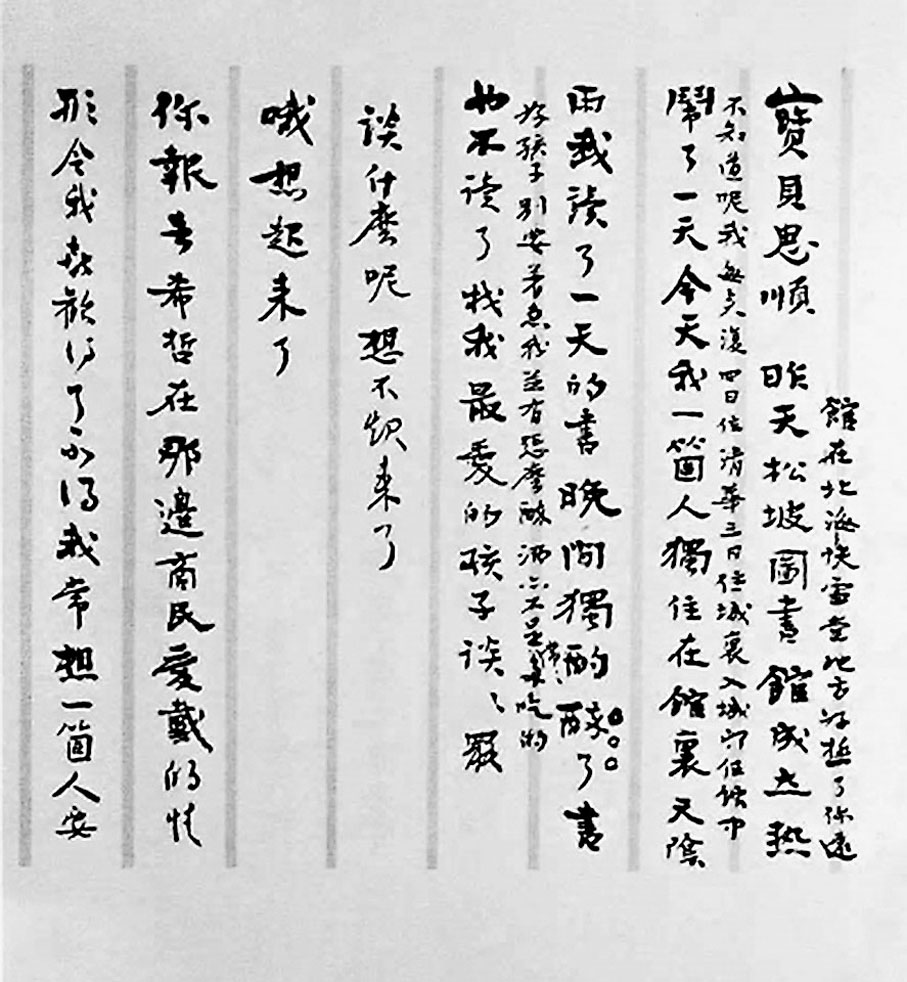 館在北海快雪堂地方好極了你還
寶貝思順 昨天松坡圖書館成立熱
不知道呢我每來復四日住清華三日住城裏入城即住館中
鬧了一天今天我一箇人獨住在館裏天陰
雨我讀了一天的書晚間獨酌醉了書
好孩子別要著急我並有怎麼醉酒亦不是常〻吃的
也不讀了找我最愛的孩子談〻罷
談什麼呢想不起來了
哦想起来了
你報告希哲在那邊商民愛戴的情
形令我喜歡得了不得我常想一箇人要